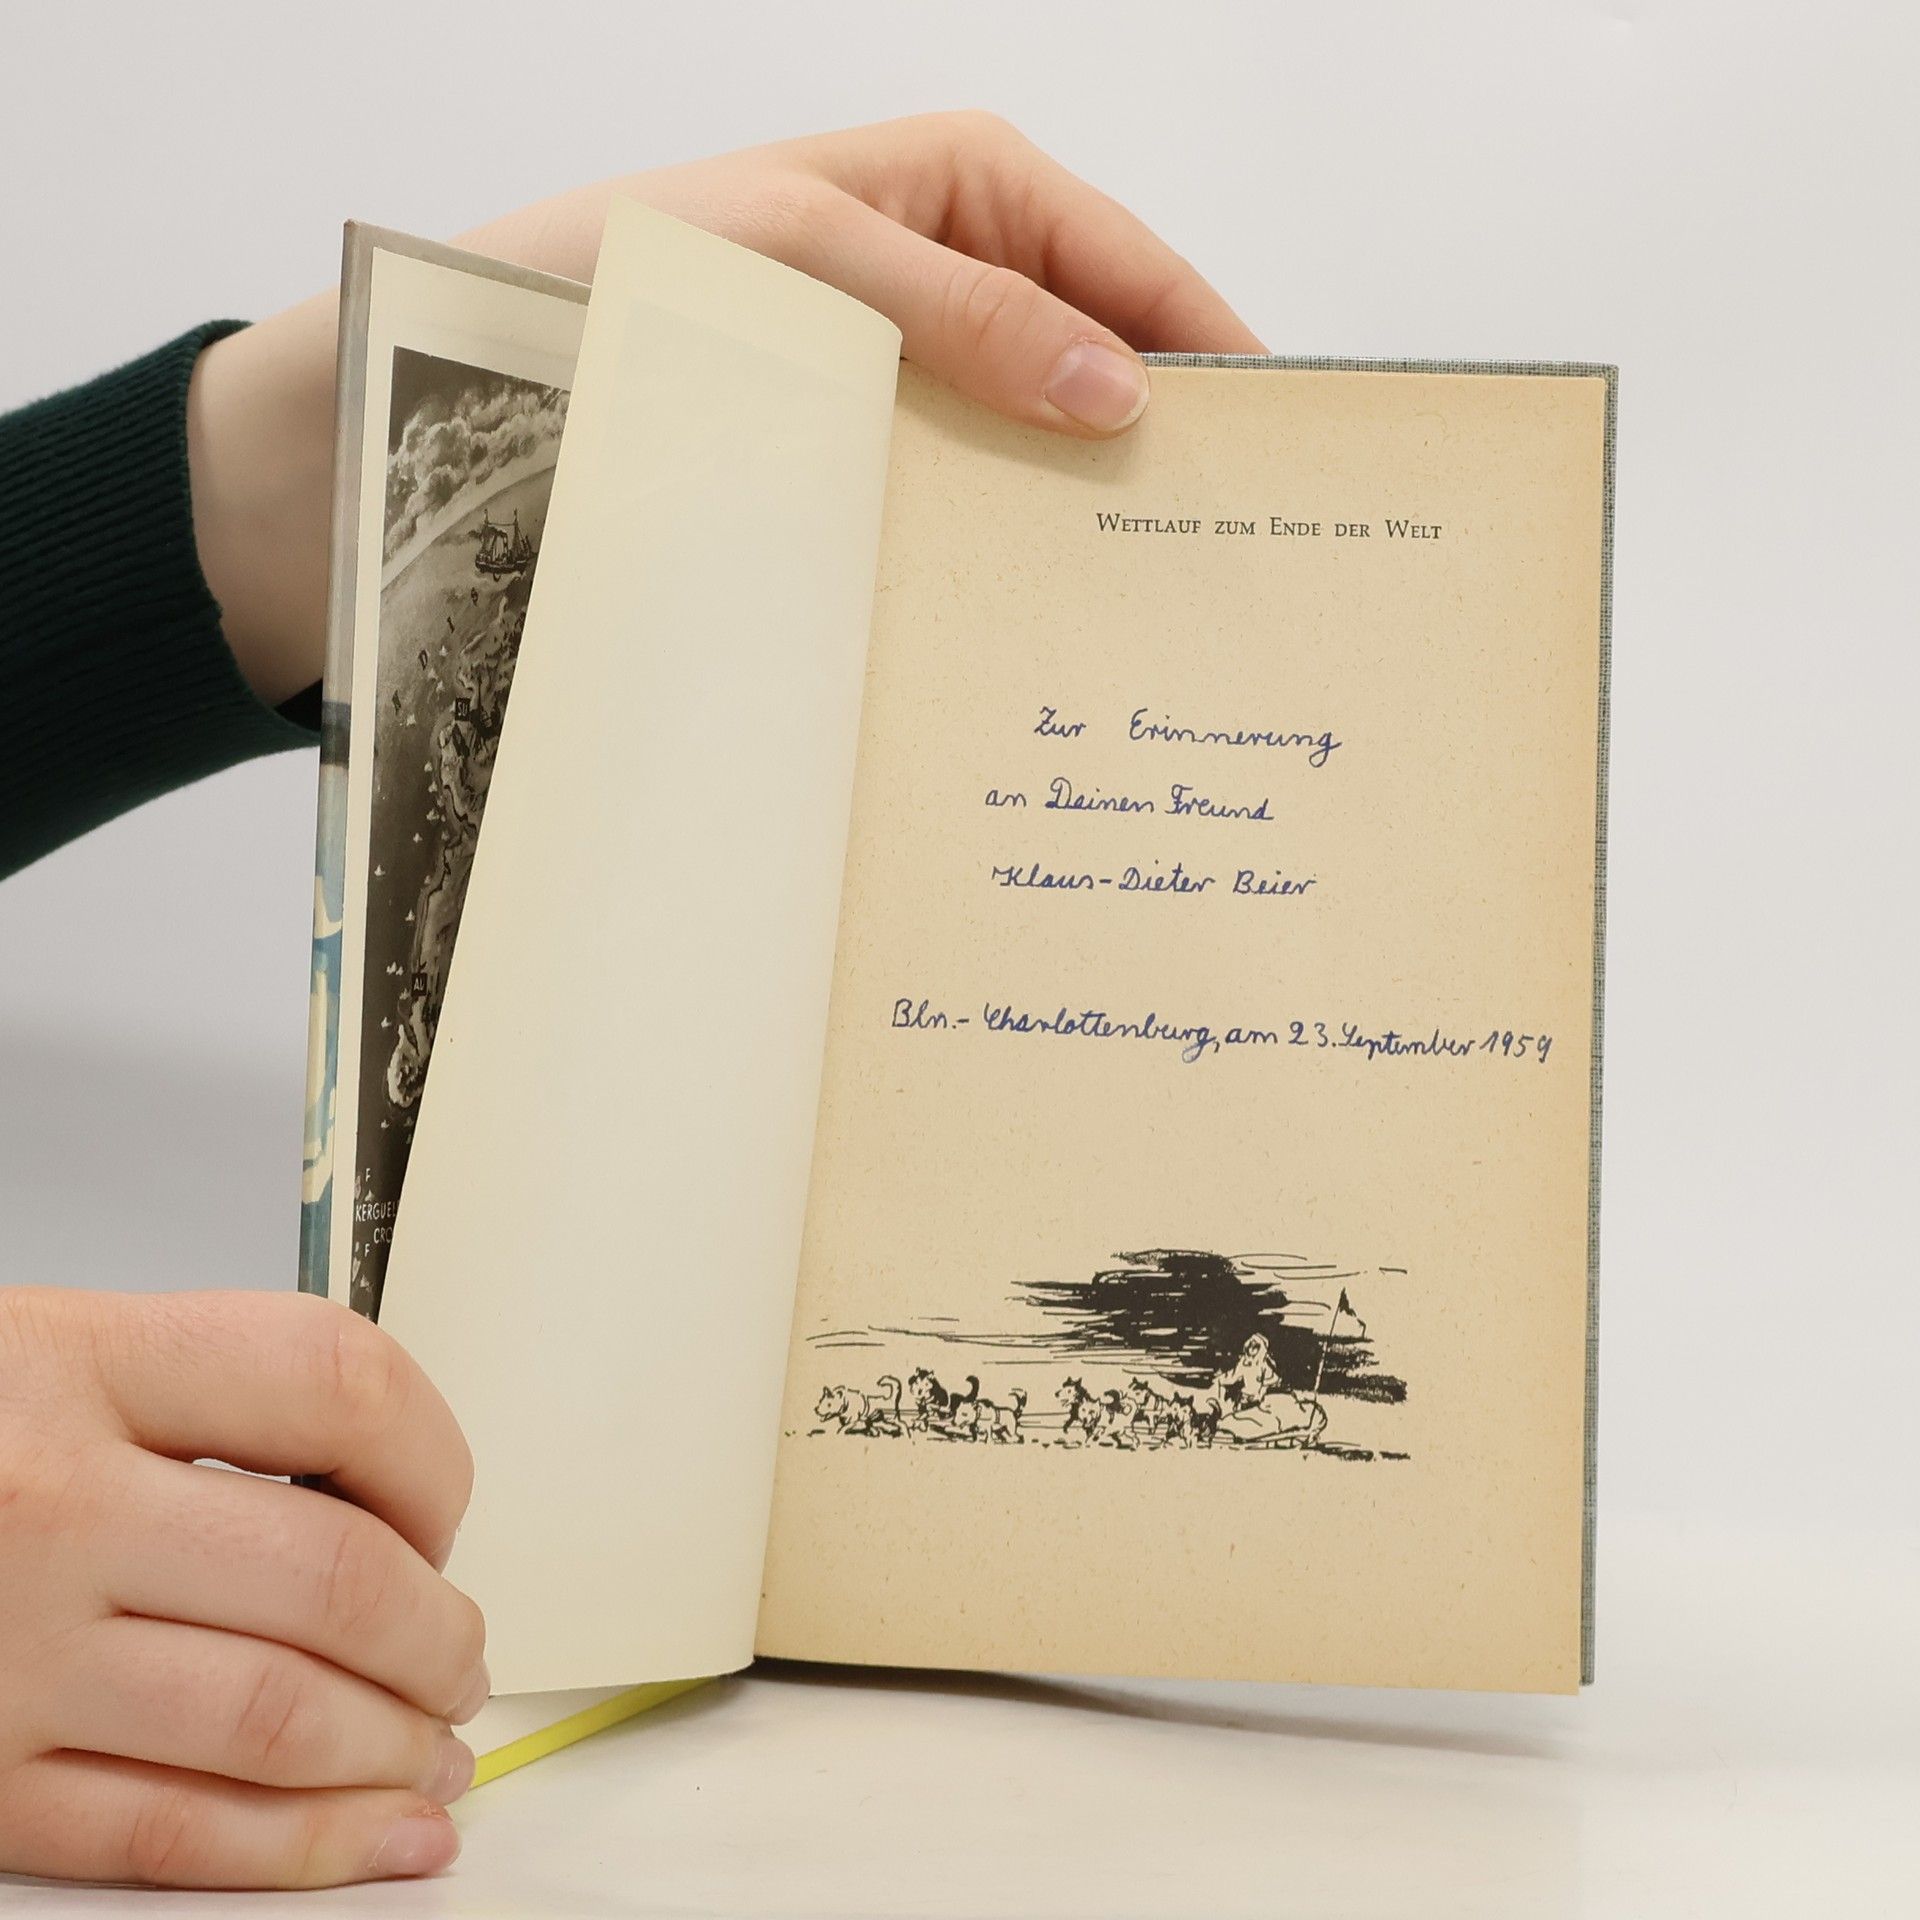 WETTLAUF ZUM ENDE DER WELT
Zur Erinnerung
an Deinen Freund
Klaus-Dieter Beier
Bln.-Charlottenburg, am 23. September 1959
SU
AU
F
KERGUEL
CRO
F